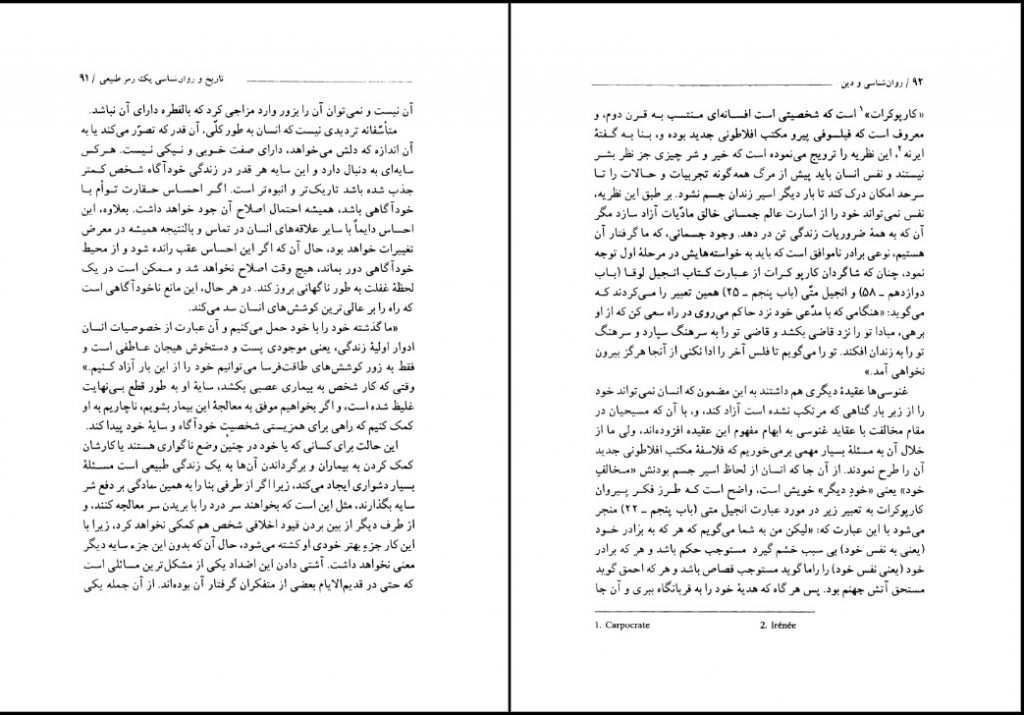 تاریخ و روان‌شناسی یک رمز طبیعی / ۹۱
آن نیست و نمی‌توان آن را بزور وارد مزاجی کرد که بالفطره دارای آن نباشد.
متأسّفانه تردیدی نیست که انسان به طور کلّی، آن قدر که تصوّر می‌کند یا به
آن اندازه که دلش می‌خواهد، دارای صفت خوبی و نیکی نیست. هرکس
سایه‌ای به دنبال دارد و این سایه هر قدر در زندگی خودآگاه شخص کمتر
جذب شده باشد تاریک‌تر و انبوه‌تر است. اگر احساس حقارت توأم با
خودآگاهی باشد، همیشه احتمال اصلاح آن جود خواهد داشت. بعلاوه، این
احساس دایماً با سایر علاقه‌های انسان در تماس و بالنتیجه همیشه در معرض
تغییرات خواهد بود، حال آن که اگر این احساس عقب رانده شود و از محیط
خودآگاهی دور بماند، هیچ وقت اصلاح نخواهد شد و ممکن است در یک
لحظهٔ غفلت به طور ناگهانی بروز کند. در هر حال، این مانع ناخودآگاهی است
که راه را بر عالی‌ترین کوشش‌های انسان سد می‌کند.
«ما گذشته خود را با خود حمل می‌کنیم و آن عبارت از خصوصیات انسان
ادوار اولیهٔ زندگی، یعنی موجودی پست و دستخوش هیجان عاطفی است و
فقط به زور کوشش‌های طاقت‌فرسا می‌توانیم خود را از این بار آزاد کنیم.»
وقتی که کار شخص به بیماری عصبی بکشد، سایهٔ او به طور قطع بی‌نهایت
غلیظ شده است، و اگر بخواهیم موفق به معالجهٔ این بیمار بشویم، ناچاریم به او
کمک کنیم که راهی برای همزیستی شخصیت خودآگاه و سایهٔ خود پیدا کند.
این حالت برای کسانی که یا خود در چنین وضع ناگواری هستند یا کارشان
کمک کردن به بیماران و برگرداندن آن‌ها به یک زندگی طبیعی است مسئلهٔ
بسیار دشواری ایجاد می‌کند، زیرا اگر از طرفی بنا را به همین سادگی بر دفع شر
سایه بگذارند، مثل این است که بخواهند سر درد را با بریدن سر معالجه کنند، و
از طرف دیگر از بین بردن قیود اخلاقی شخص هم کمکی نخواهد کرد، زیرا با
این کار جزءِ بهتر خودی او کشته می‌شود، حال آن که بدون این جزء سایه دیگر
معنی نخواهد داشت. آشتی دادن این اضداد یکی از مشکل‌ترین مسائلی است
که حتی در قدیم‌الایام بعضی از متفکران گرفتار آن بوده‌اند. از آن جمله یکی
۹۲ / روان‌شناسی و دین
«کارپوکرات»۱ است که شخصیتی است افسانه‌ای منتسب به قرن دوم، و
معروف است که فیلسوفی پیرو مکتب افلاطونی جدید بوده و، بنا به گفتهٔ
ایرنه۲، این نظریه را ترویج می‌نموده است که خیر و شر چیزی جز نظر بشر
نیستند و نفس انسان باید پیش از مرگ همه‌گونه تجربیات و حالات را تا
سرحد امکان درک کند تا بار دیگر اسیر زندان جسم نشود. بر طبق این نظریه،
نفس نمی‌تواند خود را از اسارت عالم جسمانی خالق مادّیات آزاد سازد مگر
آن که به همهٔ ضروریات زندگی تن در دهد. وجود جسمانی، که ما گرفتار آن
هستیم، نوعی برادر ناموافق است که باید به خواسته‌هایش در مرحلهٔ اول توجه
نمود، چنان که شاگردان کارپوکرات از عبارت کتاب انجیل لوقا (باب
دوازدهم ـ ۵۸) و انجیل متّی (باب پنجم ـ ۲۵) همین تعبیر را می‌کردند که
می‌گوید: «هنگامی که با مدّعی خود نزد حاکم می‌روی در راه سعی کن که از او
برهی، مبادا تو را نزد قاضی بکشد و قاضی تو را به سرهنگ سپارد و سرهنگ
تو را به زندان افکند. تو را می‌گویم تا فلس آخر را ادا نکنی از آنجا هرگز بیرون
نخواهی آمد.»
غنوسی‌ها عقیدهٔ دیگری هم داشتند به این مضمون که انسان نمی‌تواند خود
را از زیر بار گناهی که مرتکب نشده است آزاد کند، و، با آن که مسیحیان در
مقام مخالفت با عقاید غنوسی به ابهام مفهوم این عقیده افزوده‌اند، ولی ما از
خلال آن به مسئلهٔ بسیار مهمی برمی‌خوریم که فلاسفهٔ مکتب افلاطونی جدید
آن را طرح نمودند. از آن جا که انسان از لحاظ اسیر جسم بودنش «مخالفِ
خود» یعنی «خودِ دیگر» خویش است، واضح است که طرز فکر پیروان
کارپوکرات به تعبیر زیر در مورد عبارت انجیل متی (باب پنجم ـ ۲۲) منجر
می‌شود با این عبارت که: «لیکن من به شما می‌گویم که هر که به برادر خود
(یعنی به نفس خود) بی سبب خشم گیرد مستوجب حکم باشد و هر که برادر
خود (یعنی نفس خود) را راما گوید مستوجب قصاص باشد و هر که احمق گوید
مستحق آتش جهنم بود. پس هر گاه که هدیهٔ خود را به قربانگاه ببری و آن جا
1. Carpocrate 2. Irénée